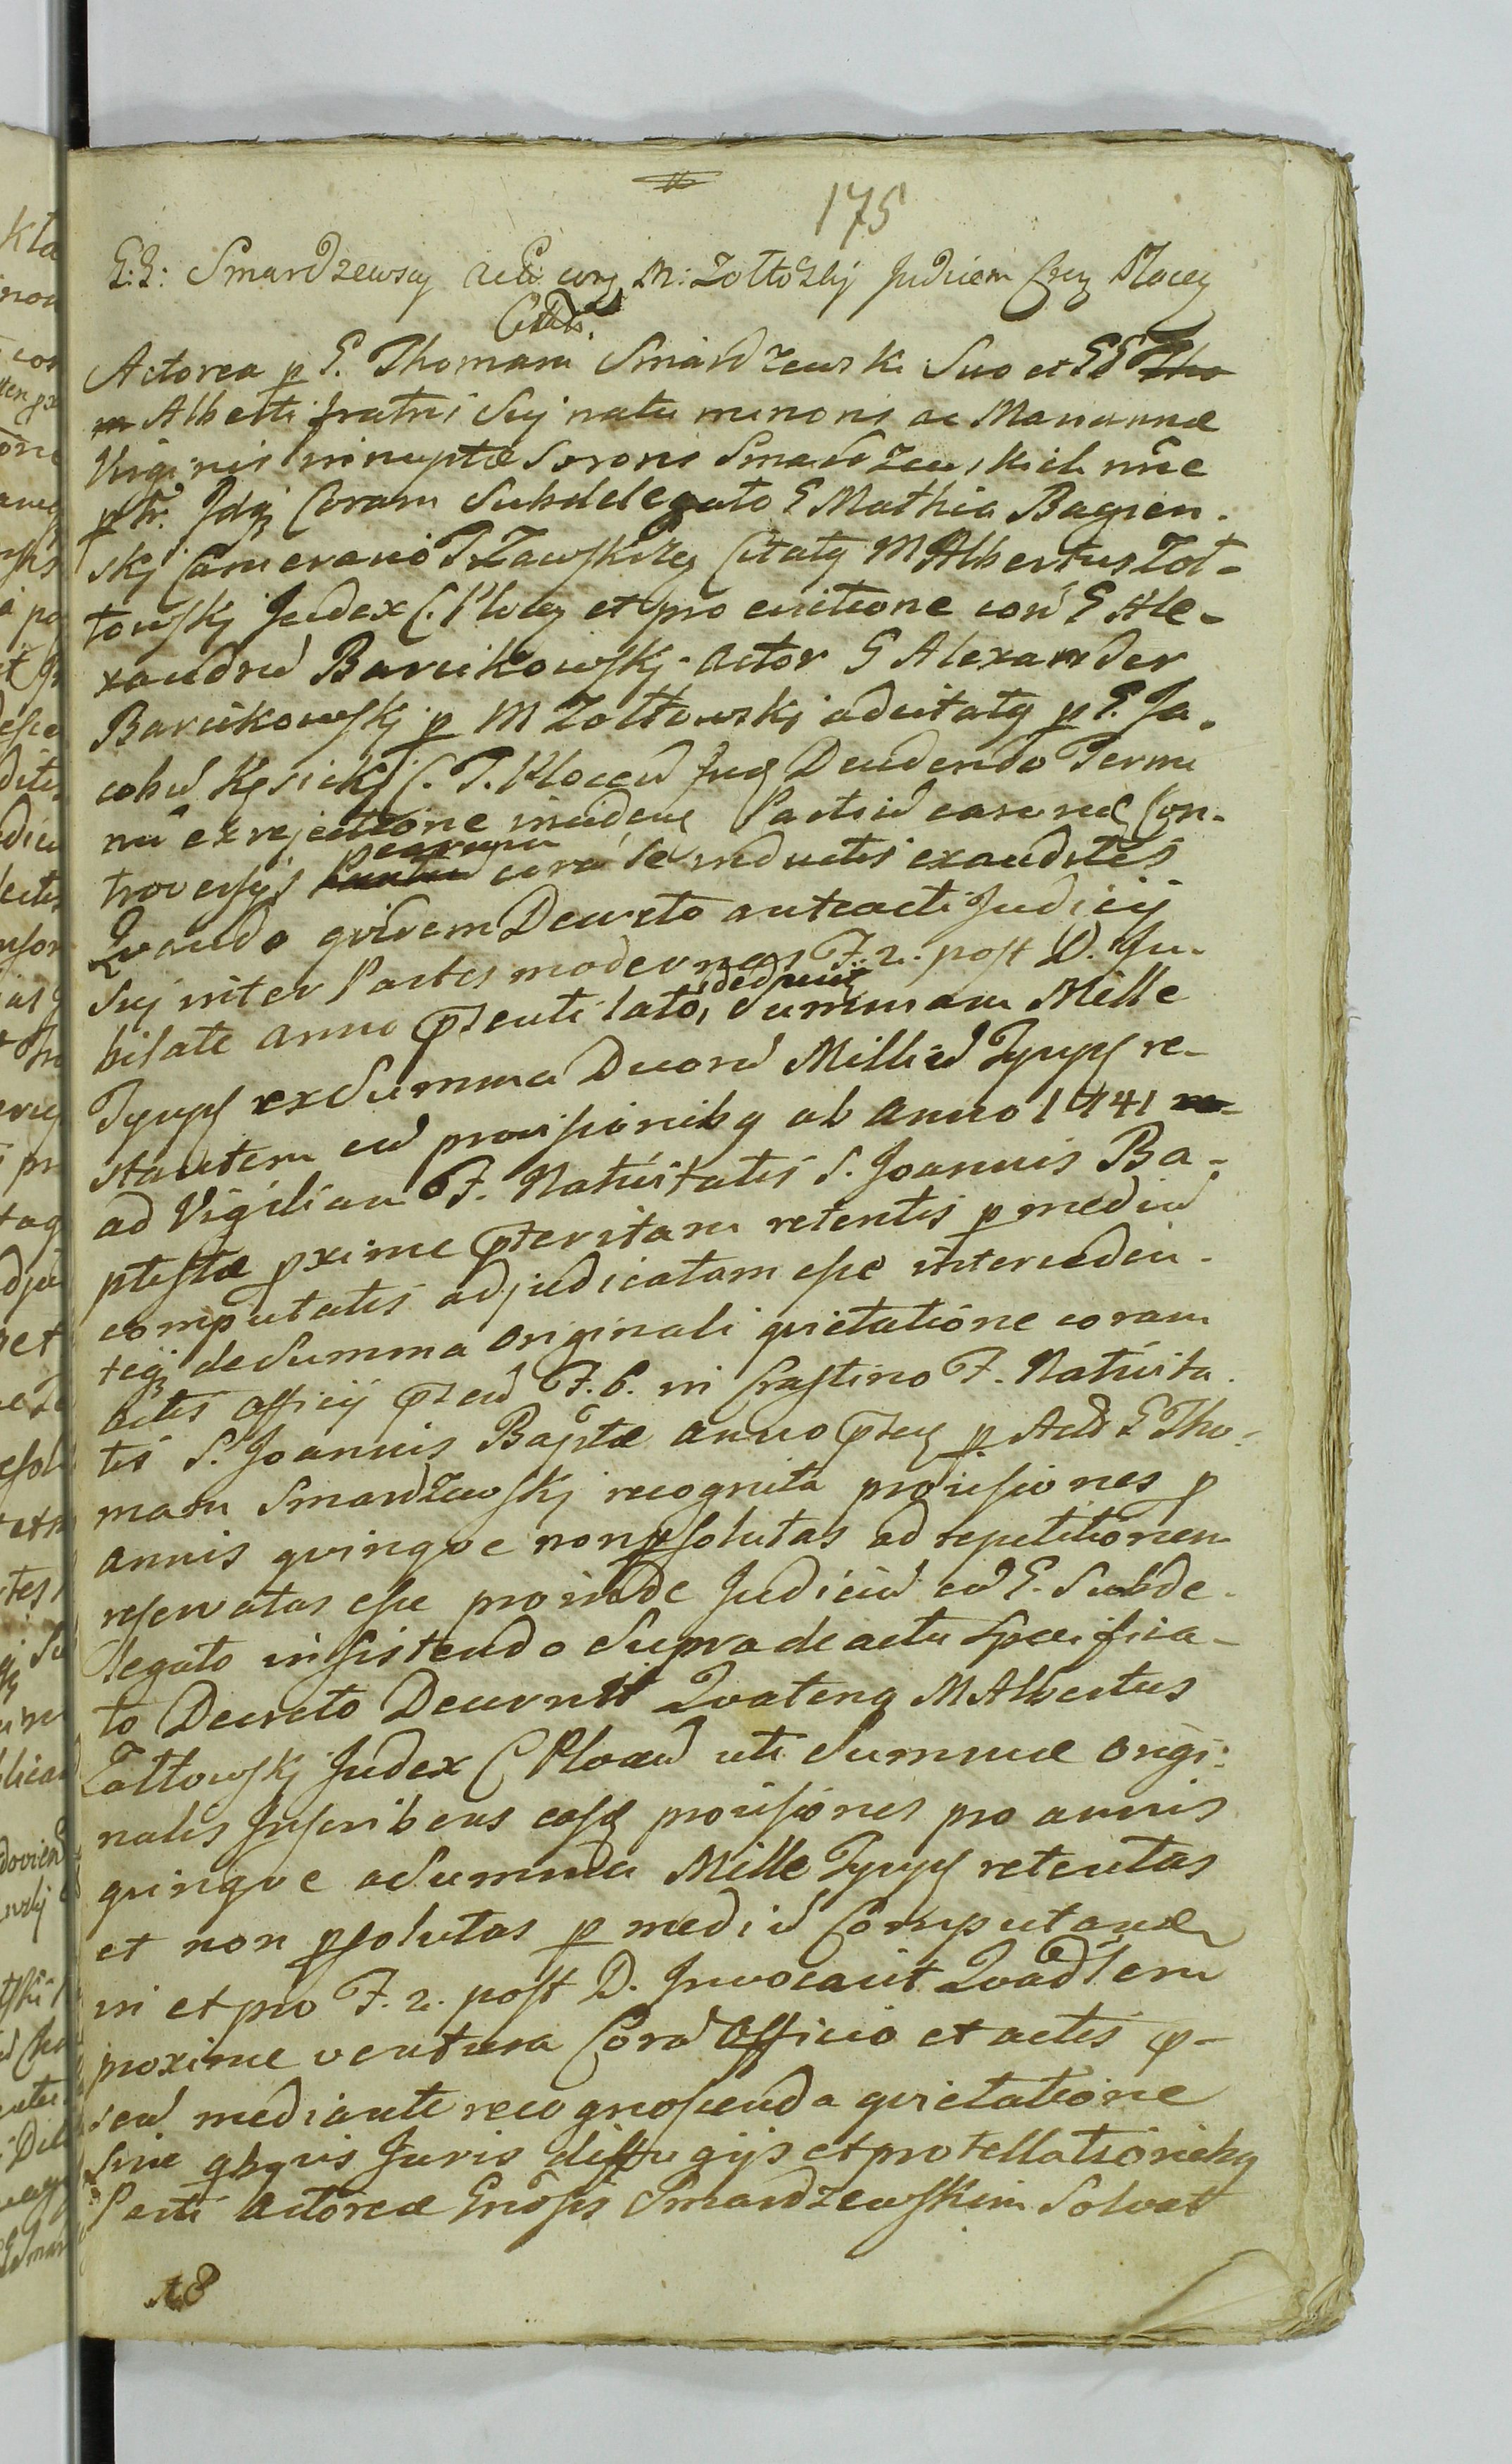 175
G:G: Smardzewscy Act: corz M: Zołtowskj Judicem Crz Plocez
Citats.
Actorea p G. Thomam Smardzewski Suo et GG Tho
m Alberti fratris Suj natu minoris ac Mariannæ
Virginis innuptæ Sororis Smardzewskich nõie
p tr. Jdqz Coram Subdelegato G Mathia Bagien-
skj Camerario Citatq M Albertus Zoł-
towskj Judex C. Plocz et pro evictione con G Ale-
xandrũ Barcikowskj. Actor G Alexander
Barcikowskj p M Zołtowskj adcitatq p G. Ja-
cobũ Kęsickj C. T. Plocen Decidendo Termi
nũ ex rejectione incidens Partiũ earumq Con-
troversijs Partiũ earum corã se inductis exauditis
Qvando qvidem Decreto anteacti Judicij
Suj inter Partes modernas F. 2. post D. Ju-
bilate anno pñzenti lato, Summam Mille
Tynph ex Summa Duorũ Milliũ Tynph re-
stantem cũ provisionibq ab anno 1741 re-
ad Vigiliam F. Nativitatis S. Joannis Ba-
ptistæ pxime pteritam retentis p mediũ
computatis adjudicatam esse interceden-
teqz de Summa originali qvietatione coram
actis officij pñzen F. 6. in Crastino F. Nativita-
tis S. Joannis Baptæ anno pñzen p Act G Tho-
mam Smardzewskj recognita provisiones p
annis qvinqve non psolutas ad repetitionem
reservatas esse proinde Judiciũ cũ G. Subde-
legato insistendo Supra de actu Specifica-
to Decreto Decernit Qvatenq M Albertus
Zołtowskj Judex C Plocen uti Summæ origi-
nalis Inscribens easq provisiones pro annis
qvinqve a Summa Mille Tynph retentas
et non psolutas p mediũ Computan
in et pro F. 2. post D. Invocavit Qvad̃lem
proxime ventura Corã Officio et actis p-
sen mediante recognoscenda qvietatione
Sine qbqvis Juris diffugijs et protellationibq
Parti Actoreæ Gnõsis Smardzewskim Solvat